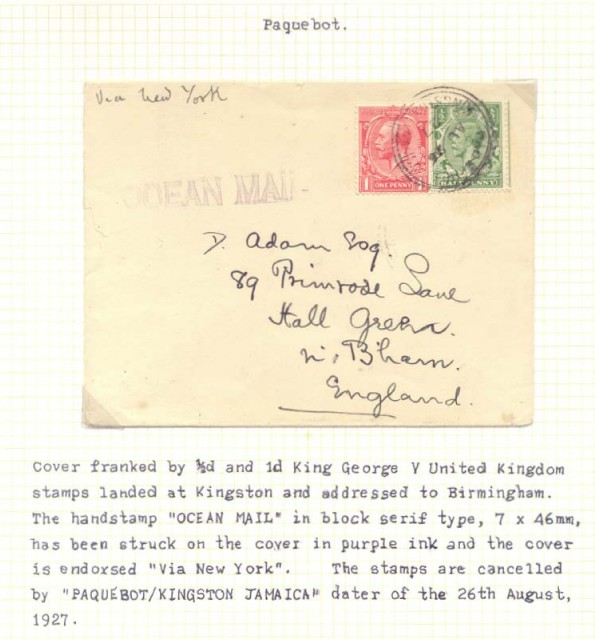 Paquebot.
Via New York
OCEAN MAIL
ONE PENNY
1
HALFPENNY
D. Adam Esq.
89 Primrose Lane
Hall Green.
nr. B'ham.
England.
Cover franked by ½d and 1d King George V United Kingdom
stamps landed at Kingston and addressed to Birmingham.
The handstamp "OCEAN MAIL" in block serif type, 7 x 46mm,
has been struck on the cover in purple ink and the cover
is endorsed "Via New York". The stamps are cancelled
by "PAQUEBOT/KINGSTON JAMAICA" dater of the 26th August,
1927.